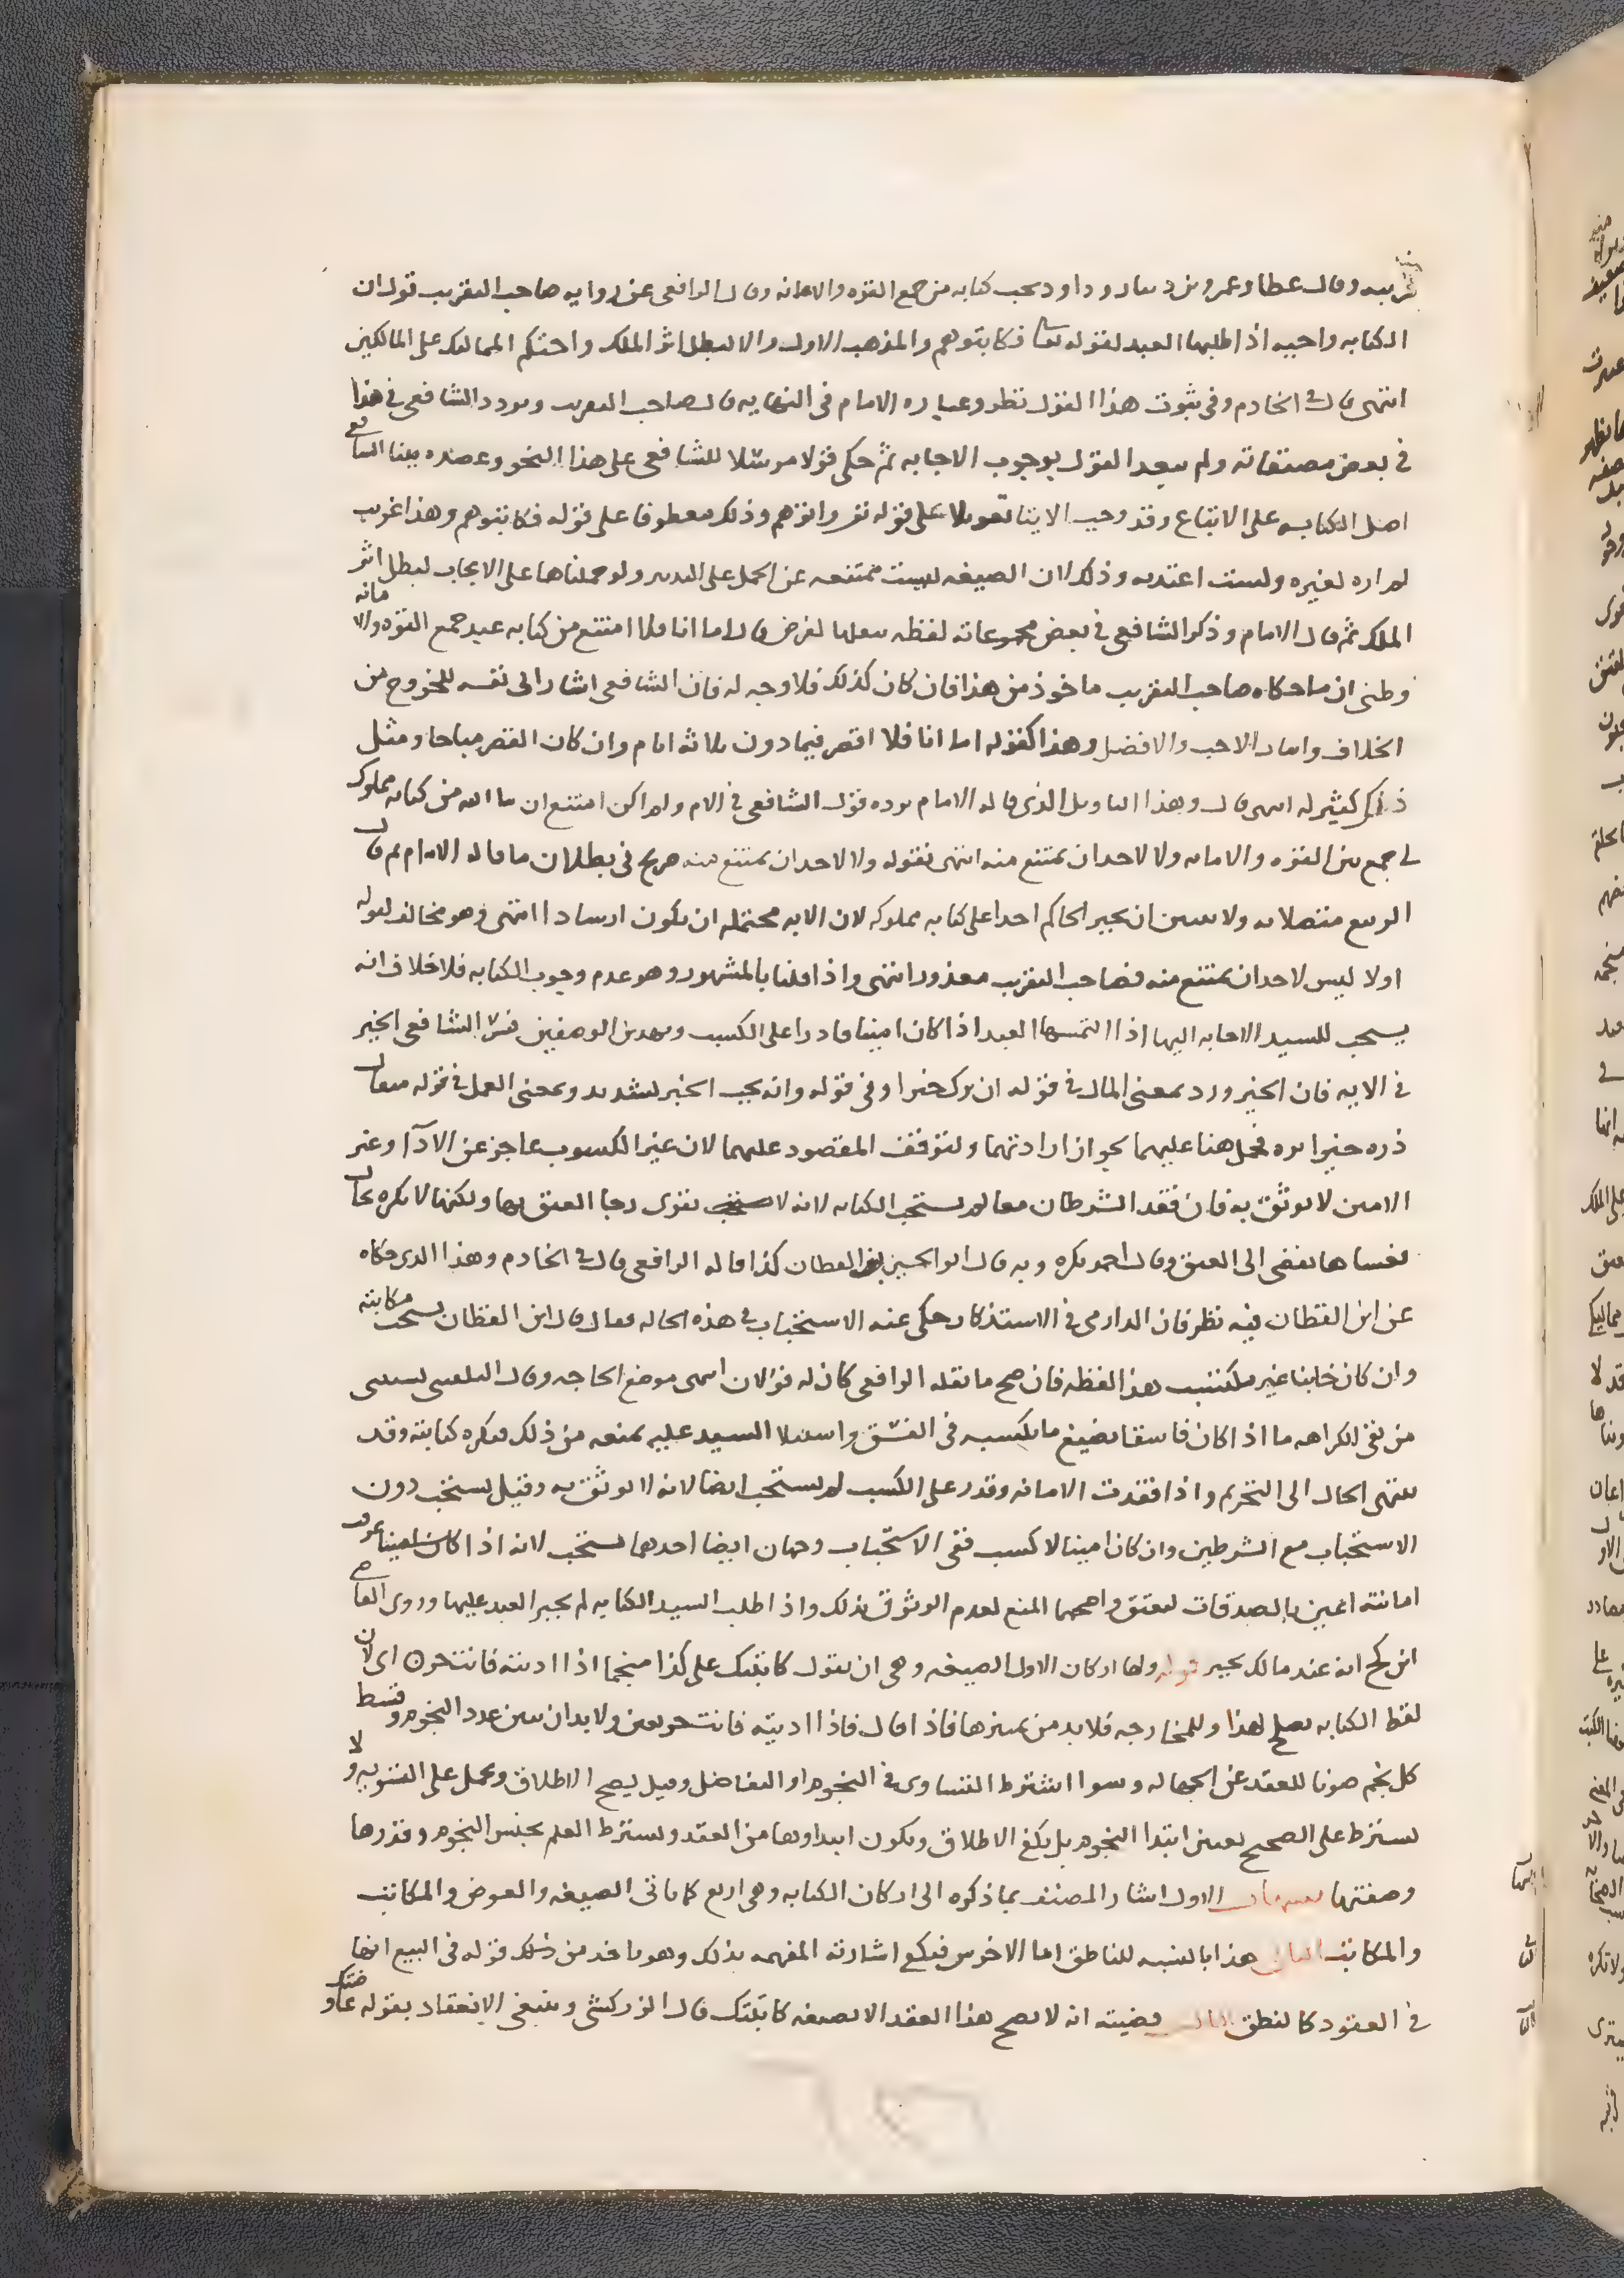 قريبه وقال عطا وعمرو بن دينار وداود يجب كتابه من جمع القوه والامانه وقال الرافعي عن روايه صاحب التقريب قول ان
الكتابه واجبه اذا طلبها العبد لقوله تعا فكاتبوهم والمذهب الاول والا لبطل اثر الملك واحتكم المماليك على المالكين
انتهى قال في الخادم وفي ثبوت هذا القول نظر وعباره الامام في النهايه قال صاحب التقريب وتردد الشافعي في هذا
في بعض مصنفاته ولم يبعد القول بوجوب الاجابه ثم حكى قولا مرسلا للشافعي على هذا النحو وعضده
اصل الكتابه على الايتاع وقد وجب الايتا تعويلا على قوله تعـ واتوهم وذلك معطوفا على قوله فكاتبوهم وهذا غريب
لم اره لغيره ولست اعتد به وذلك ان الصيغه ليست ممتنعه عن الحمل على الندب ولو حملناها على الايجاب لبطل اثر
الملك ثم قال الامام وذكر الشافعي في بعض مجموعاته لفظه لغرض قال اما انا فلا امتنع من كتابه عبد جمع القوه والامانه
وظني ان ما حكاه صاحب التقريب ماخوذ من هذا فان كان كذلك فلا وجه له فان الشافعي اشار الى نفسه للخروج من
الخلاف وايثار الاحب والافضل وهذا كقوله اما انا فلا اقصر فيما دون ثلاثه ايام وان كان القصر مباحا ومثل
ذلك كثير له انتهى قال وهذا التاويل الذي قاله الامام يرده قول الشافعي في الام ولم اكن امتنع ان شا الله من كتابه مملوك
لي جمع بين القوه والامانه ولا لاحد ان يمتنع منه انتهى فقوله ولا لاحد ان يمتنع منه صريح في بطلان ما قاله الامام ثم قال
الربيع متصلا به ولا يبين ان يجبر الحاكم احدا على كتابه مملوكه لان الايه محتمله ان يكون ارشادا انتهى وهو مخالف لقوله
اولا ليس لاحد ان يمتنع منه فصاحب التقريب معذور انتهى واذا قلنا بالمشهور وهو عدم وجوب الكتابه فلا خلاف انه
يستحب للسيد الاجابه اليها اذا التمسها العبد اذا كان امينا قادرا على الكسب وبهذين الوصفين فسر الشافعي الخير
في الايه فان الخير ورد بمعنى المال في قوله ان ترك خيرا وفي قوله وانه لحب الخير لشديد وبمعنى العمل في قوله مثقال
ذره خيرا يره فحمل هنا عليهما لجواز ارادتهما ولتوقف المقصود عليهما لان غير الكسوب عاجز عن الادآ وغير
الامين لا يوثق به فان فقد الشرطان معا لم تستحب الكتابه لانه لا يقوى رجا العتق بها ولكنها لا تكره بحال
لانها تفضي الى العتق وقال احمد تكره وبه قال ابو الحسين بن القطان كذا قاله الرافعي قال في الخادم وهذا الذي حكاه
عن ابن القطان فيه نظر فان الدارمي في الاستذكار حكى عنه الاستحباب في هذه الحاله فقال قال ابن القطان يستحب مكاتبته
وان كان خاينا غير مكتسب هذا لفظه فان صح ما نقله الرافعي كان له قولان انتهى موضع الحاجه وقال البلقيني يستثنى
من نفي الكراهه ما اذا كان فاسقا يضيع ما يكسبه في الفسق واستيلا السيد عليه يمنعه من ذلك فتكره كتابته وقد
ينتهي الحال الى التحريم واذا فقدت الامانه وقدر على الكسب لم يستحب ايضا لانه لا يوثق به وقيل يستحب دون
الاستحباب مع الشرطين وان كان امينا لا كسب ففي الاستحباب وجهان ايضا احدهما تستحب لانه اذا كان امينا عرف
امانته اعين بالصدقات ليعتق واصحهما المنع لعدم الوثوق بذلك واذا طلب السيد الكتابه لم يجبر العبد عليها وروى القاضي
ابن كج انه عند مالك يجبر قوله ولها اركان الاول الصيغه وهي ان يقول كاتبتك على كذا منجما اذا اديته فانت حر اي لان
لفظ الكتابه يصلح لهذا وللمخارجه فلا بد من تميزها فاذا قال فاذا اديته فانت حر تعين ولا بد ان يبين عدد النجوم وقسط
كل نجم صونا للعقد عن الجهاله وسوا اشترط التساوي في النجوم او التفاضل وقيل يصح الاطلاق ويحمل على التسويه ولا
يشترط على الصحيح تعيين ابتدا النجوم بل يكفي الاطلاق ويكون ابتداوها من العقد ويشترط العلم بجنس النجوم وقدرها
وصفتها تنبيهات الاول اشار المصنف بما ذكره الى اركان الكتابه وهي اربع كما ياتي الصيغه والعوض والمكاتِب
والمكاتَب الثاني هذا بالنسبه للناطق اما الاخرس فيكفي اشارته المفهمه بذلك وهو ماخذ من ذلك قوله في البيع انها
في العقود كالنطق الثالث قضيته انه لا يصح هذا العقد الا بصيغه كاتبتك قال الزركشي وينبغي الانعقاد بقوله